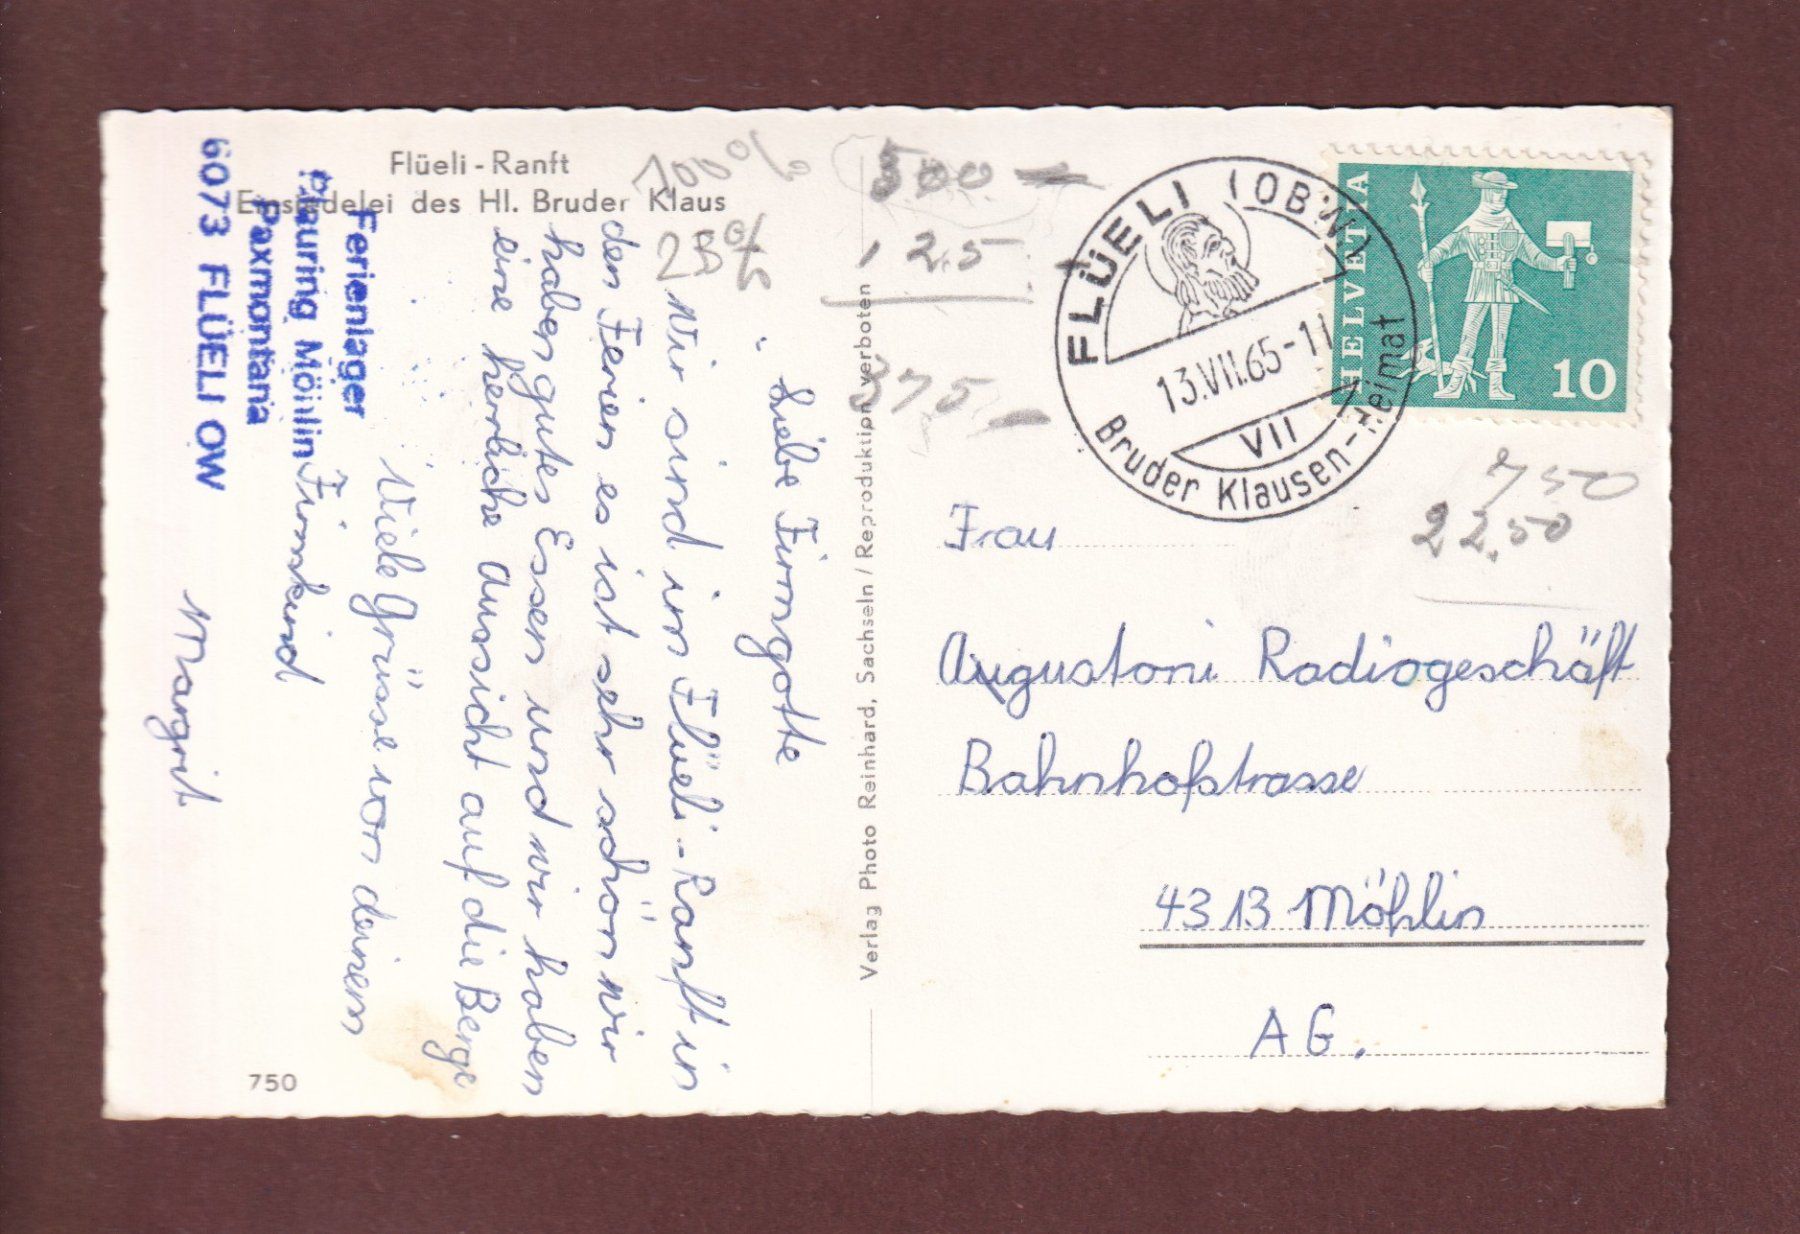 Flüeli - Ranft
Einsiedelei des Hl. Bruder Klaus
100%
25%
500.-
125
375.-
Liebe Firmgotte
Wir sind im Flüeli-Ranft in
den Ferien es ist sehr schön wir
haben gutes Essen und wir haben
eine herrliche Aussicht auf die Berge
Viele Grüsse von deinem
Firmkind
Margrit
Ferienlager
Blauring Möhlin
Paxmontana
6073 FLÜELI OW
750
Verlag Photo Reinhard, Sachseln / Reproduktion verboten
FLÜELI (OBW.)
13.VII.65-11
VII
Bruder Klausen-Heimat
HELVETIA
10
750
22.50
Frau
Augustoni Radiogeschäft
Bahnhofstrasse
4313 Möhlin
AG.